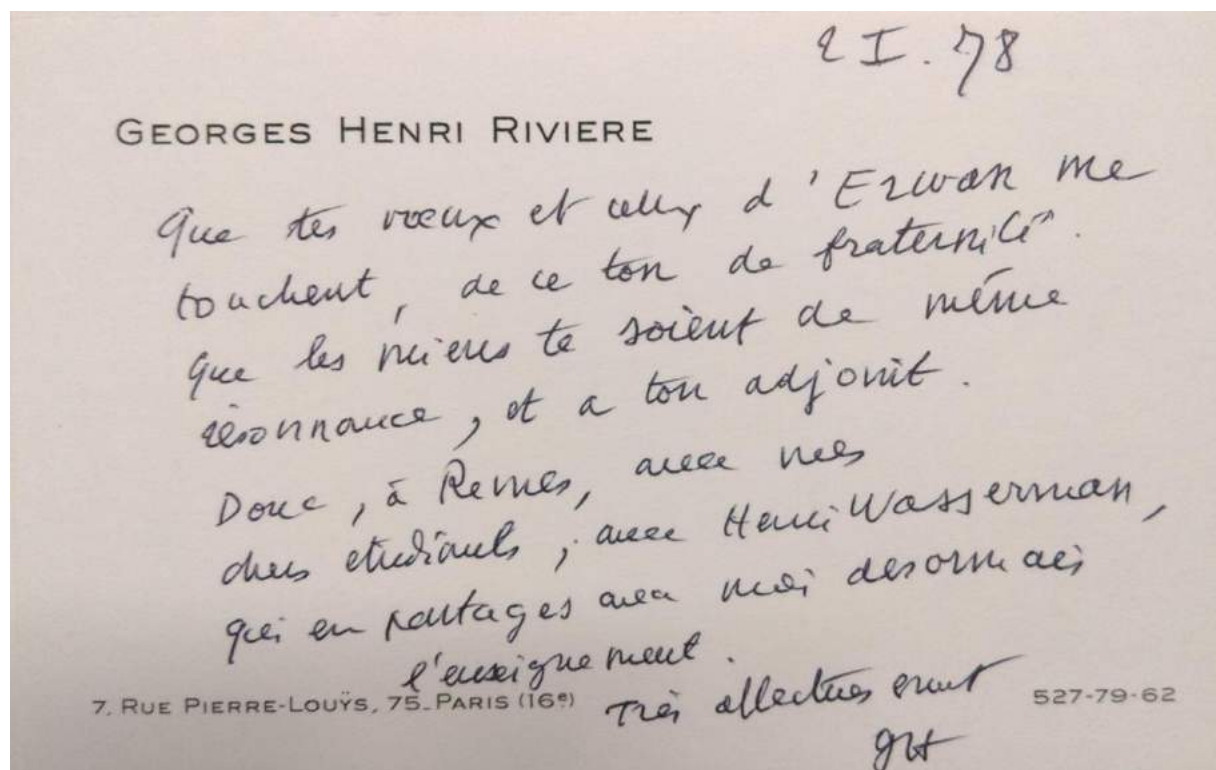 2 I. 78
GEORGES HENRI RIVIERE
Que tes voeux et ceux d'Erwan me
touchent, de ce ton de fraternité.
Que les miens te soient de même
résonnance, et a ton adjoint.
Donc, à Rennes, avec mes
chers etudiants, avec Henri Wasserman,
qui en partages avec moi desormais
l'enseignement.
Très affectueusement
GHR
7, RUE PIERRE-LOUŸS, 75_PARIS (16e)
527-79-62